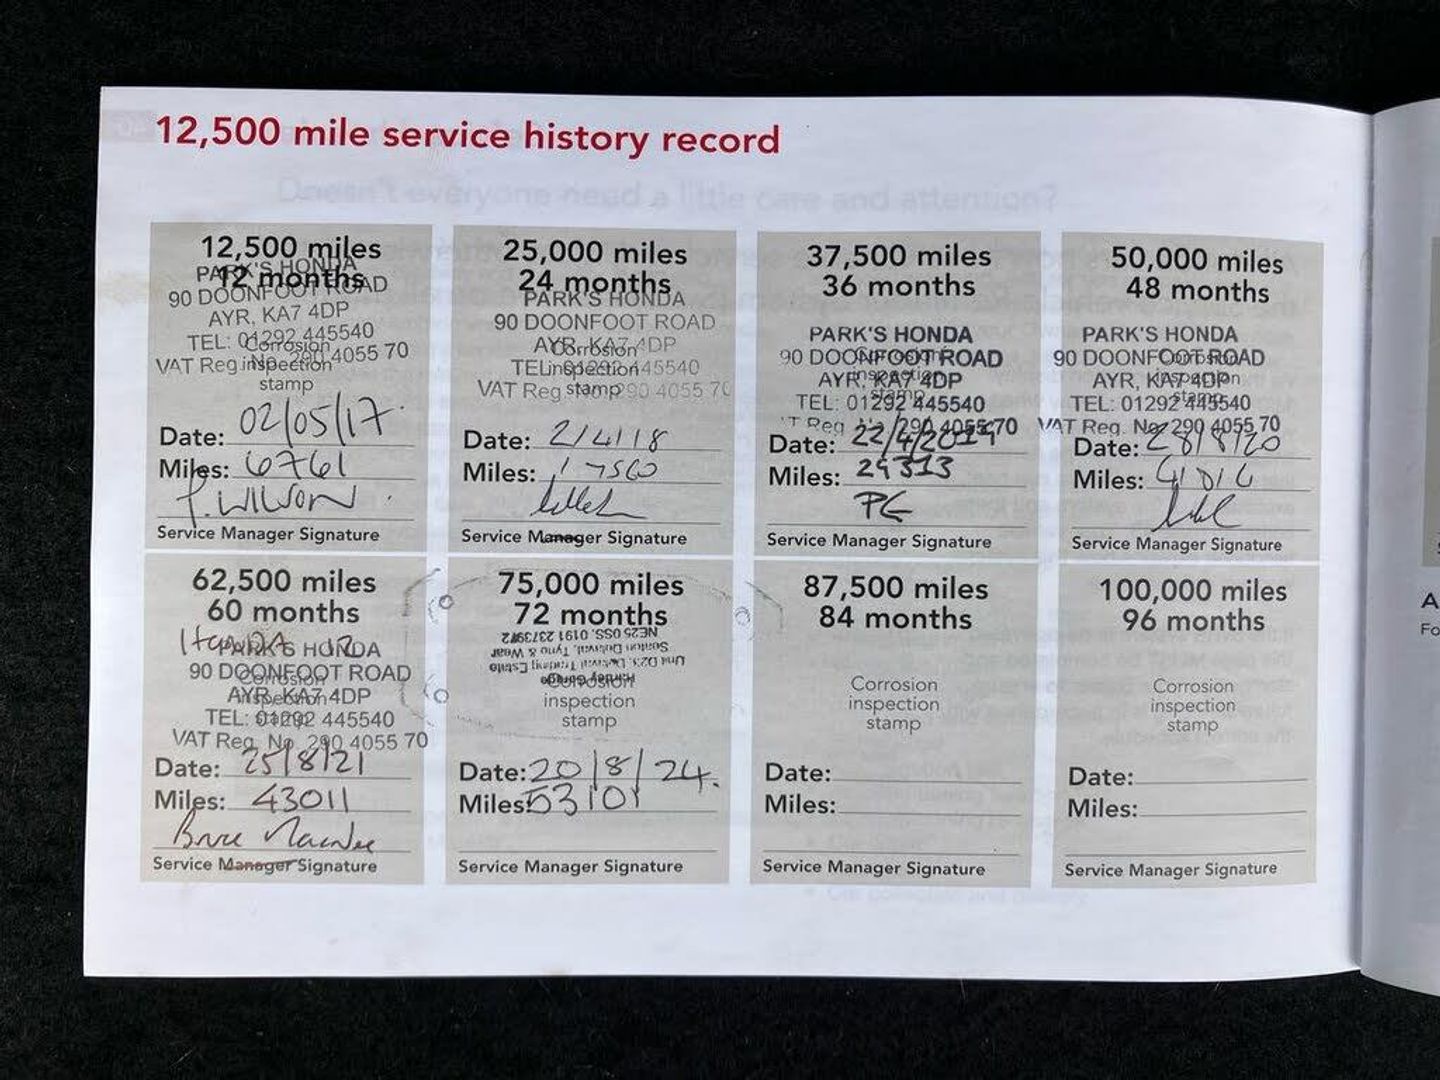 12,500 mile service history record
Doesn't everyone need a little care and attention?
12,500 miles
12 months
PARK'S HONDA
90 DOONFOOT ROAD
AYR, KA7 4DP
TEL: 01292 445540
VAT Reg No. 290 4055 70
Corrosion
inspection
stamp
Date: 02/05/17.
Miles: 6761
J. WILSON
Service Manager Signature
25,000 miles
24 months
PARK'S HONDA
90 DOONFOOT ROAD
AYR, KA7 4DP
TEL: 01292 445540
VAT Reg No. 290 4055 70
Corrosion
inspection
stamp
Date: 2/4/18
Miles: 17560
Service Manager Signature
37,500 miles
36 months
PARK'S HONDA
90 DOONFOOT ROAD
AYR, KA7 4DP
TEL: 01292 445540
VAT Reg. No. 290 4055 70
Corrosion
inspection
stamp
Date: 22/4/2019
Miles: 29313
PG
Service Manager Signature
50,000 miles
48 months
PARK'S HONDA
90 DOONFOOT ROAD
AYR, KA7 4DP
TEL: 01292 445540
VAT Reg. No. 290 4055 70
Corrosion
inspection
stamp
Date: 28/8/20
Miles: 41016
Service Manager Signature
62,500 miles
60 months
HONDA
PARK'S HONDA
90 DOONFOOT ROAD
AYR, KA7 4DP
TEL: 01292 445540
VAT Reg. No. 290 4055 70
Corrosion
inspection
stamp
Date: 25/8/21
Miles: 43011
Service Manager Signature
75,000 miles
72 months
Hartley Garage
Unit D23, Delaval Trading Estate
Seaton Delaval, Tyne & Wear
NE25 0SS. 0191 2373972
Corrosion
inspection
stamp
Date: 20/8/24.
Miles: 53101
Service Manager Signature
87,500 miles
84 months
Corrosion
inspection
stamp
Date:
Miles:
Service Manager Signature
100,000 miles
96 months
Corrosion
inspection
stamp
Date:
Miles:
Service Manager Signature